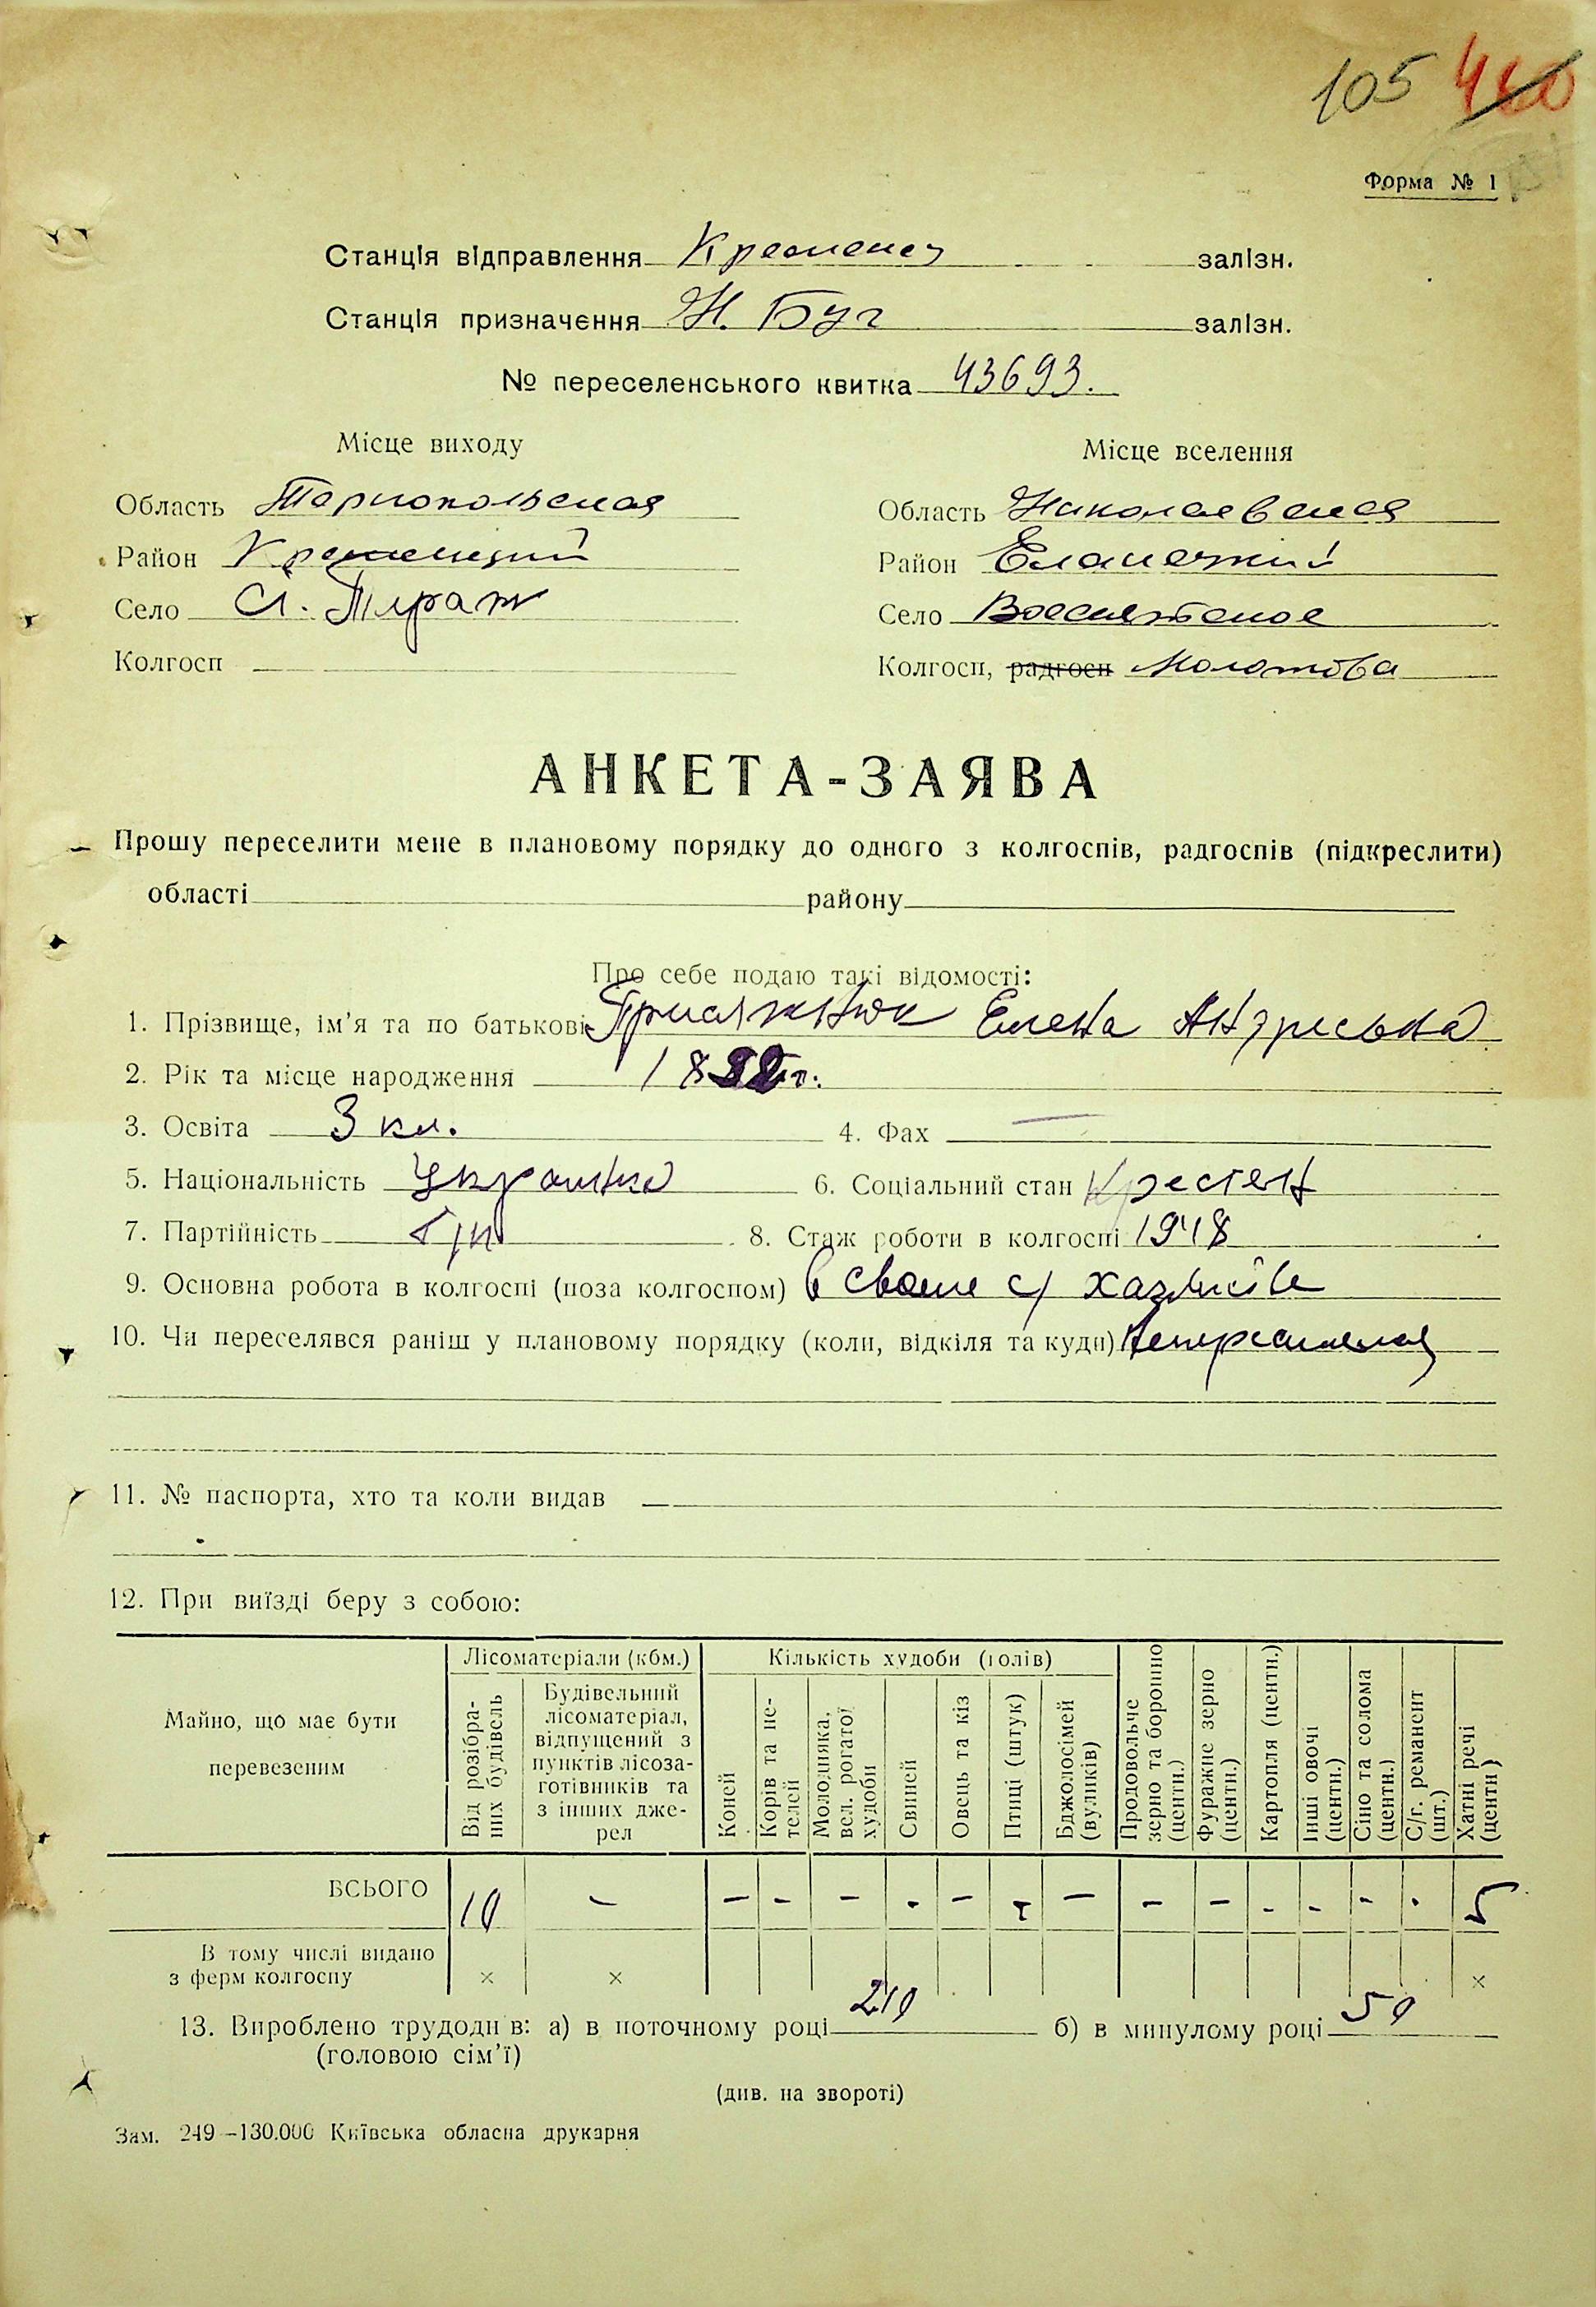 105 460
Форма № 1
Станція відправлення Кременец залізн.
Станція призначення Н. Буг залізн.
№ переселенського квитка 43693.
Місце виходу
Місце вселення
Область Тернопольская
Область Николаевская
Район Кременецкий
Район Еланецкий
Село Сл. Тираж
Село
Колгосп —
Колгосп, радгосп Молотова
АНКЕТА-ЗАЯВА
Прошу переселити мене в плановому порядку до одного з колгоспів, радгоспів (підкреслити)
області району
Про себе подаю такі відомості:
1. Прізвище, ім’я та по батькові Присяжнюк Елена
2. Рік та місце народження
3. Освіта 3 кл. 4. Фах —
5. Національність Украинка 6. Соціальний стан
7. Партійність б/п 8. Стаж роботи в колгоспі 1948
9. Основна робота в колгоспі (поза колгоспом) в своем с/
10. Чи переселявся раніш у плановому порядку (коли, відкіля та куди)
11. № паспорта, хто та коли видав —
12. При виїзді беру з собою:
Майно, що має бути перевезеним
Лісоматеріали (кбм.)
Від розібраних будівель
Будівельний лісоматеріал, відпущений з пунктів лісозаготівників та з інших джерел
Кількість худоби (голів)
Коней
Корів та нетелей
Молодняка, вел. рогатої худоби
Свиней
Овець та кіз
Птиці (штук)
Бджолосімей (вуликів)
Продовольче зерно та борошно (центн.)
Фуражне зерно (центн.)
Картопля (центн.)
Інші овочі (центн.)
Сіно та солома (центн.)
С/г. реманент (шт.)
Хатні речі (центн)
ВСЬОГО 10 — — — — - — - — — — - - - - 5
В тому числі видано
з ферм колгоспу × × ×
13. Вироблено трудоднів: а) в поточному році 210 б) в минулому році 50
(головою сім’ї)
(див. на звороті)
Зам. 249—130.000 Київська обласна друкарня